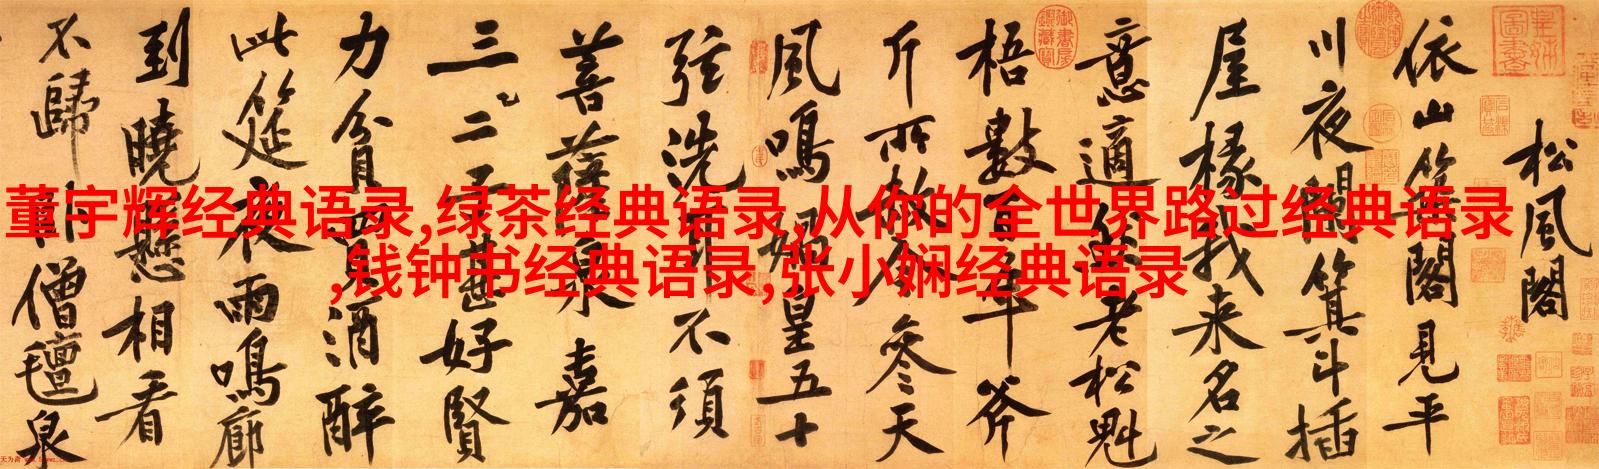 董宇辉经典语录,绿茶经典语录,从你的全世界路过经典语录
,钱钟书经典语录,张小娴经典语录
松風閣
依山築閣見平
川夜闌箕斗插
屋椽我来名之
意適然老松魁
梧數百年斧
斤所赦今參天
風鳴媧皇五十
弦洗耳不須
菩薩泉嘉
三二子甚好賢
力貧買酒醉
此筵夜雨鳴廊
到曉懸相看
不歸卧僧氈泉
皇姊圖書